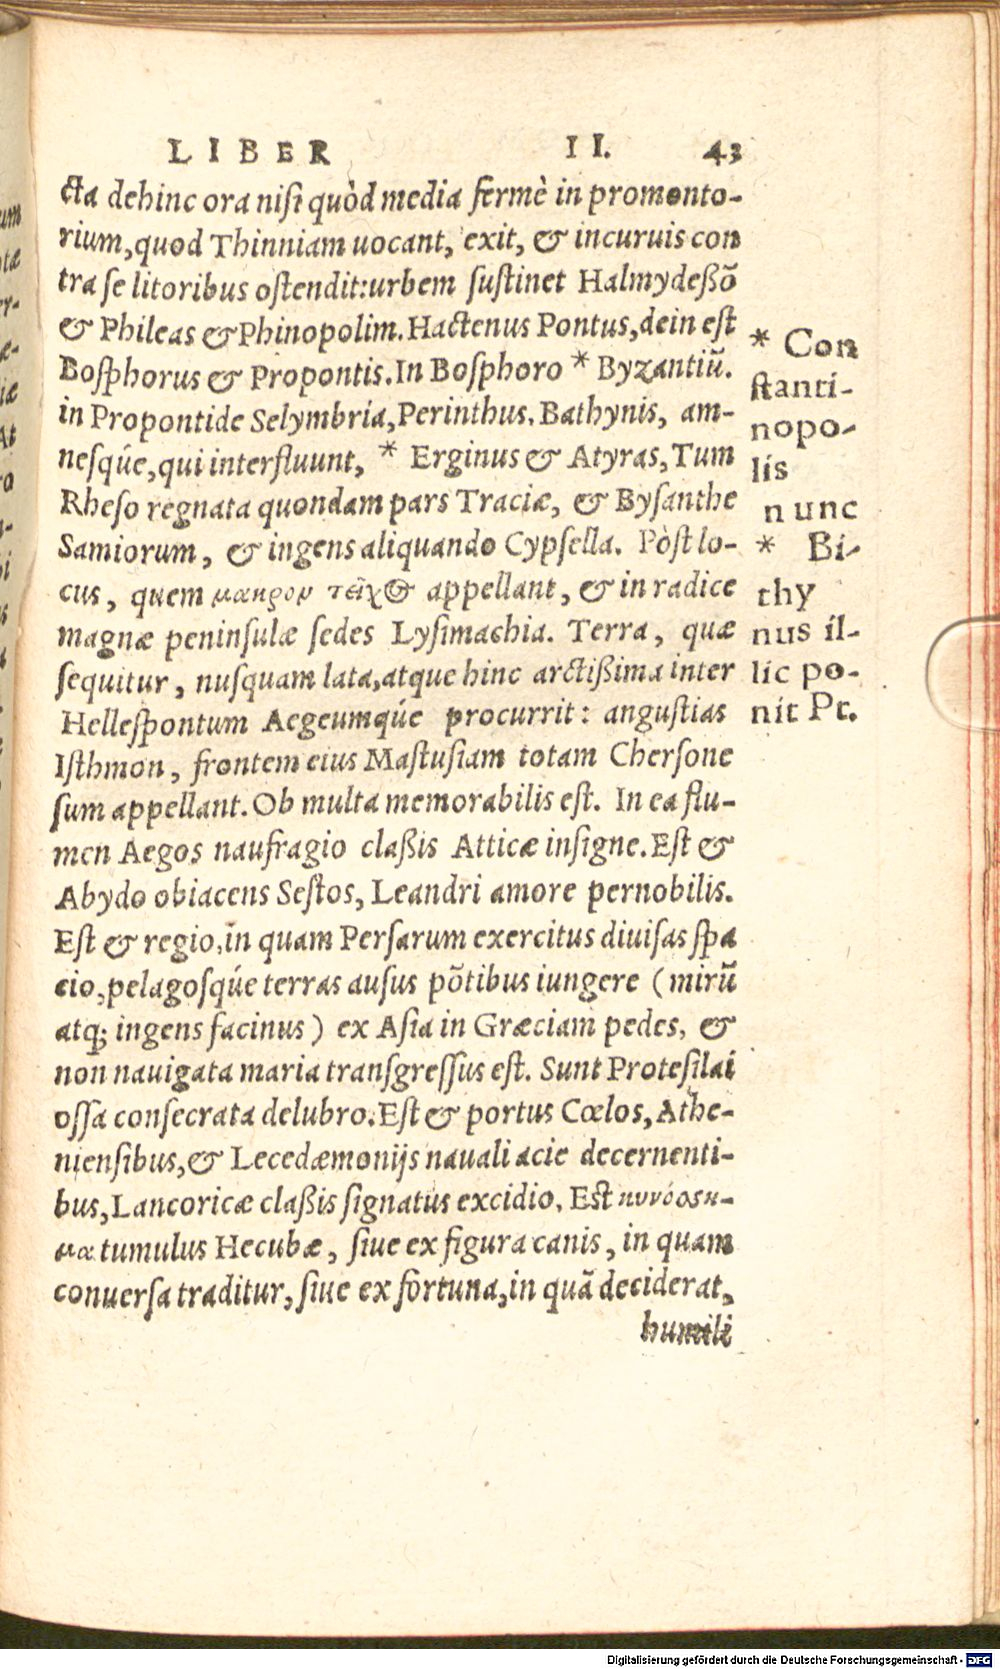 LIBER II. 43
cta dehinc ora nisi quòd media fermè in promonto-
rium, quod Thinniam uocant, exit, & incuruis con
tra se litoribus ostendit: urbem sustinet Halmydeßõ
& Phileas & Phinopolim. Hactenus Pontus, dein est
Bosphorus & Propontis. In Bosphoro * Byzantiũ.
in Propontide Selymbria, Perinthus, Bathynis, am-
nesq́ue, qui interfluunt, * Erginus & Atyras, Tum
Rheso regnata quondam pars Traciæ, & Bysanthe
Samiorum, & ingens aliquando Cypsella. Pòst lo-
cus, quem μακρον τεῖχος appellant, & in radice
magnæ peninsulæ sedes Lysimachia. Terra, quæ
sequitur, nusquam lata, atque hinc arctißima inter
Hellespontum Aegeumq́ue procurrit: angustias
Isthmon, frontem eius Mastusiam totam Chersone
sum appellant. Ob multa memorabilis est. In ea flu-
men Aegos naufragio claßis Atticæ insigne. Est &
Abydo obiacens Sestos, Leandri amore pernobilis.
Est & regio, in quam Persarum exercitus diuisas spa
cio, pelagosq́ue terras ausus põtibus iungere (mirũ
atq; ingens facinus) ex Asia in Græciam pedes, &
non nauigata maria transgressus est. Sunt Protesilai
ossa consecrata delubro. Est & portus Cœlos, Athe-
niensibus, & Lecedæmonijs nauali acie decernenti-
bus, Lancoricæ claßis signatus excidio. Est κυνόσση-
μα tumulus Hecubæ, siue ex figura canis, in quam
conuersa traditur, siue ex fortuna, in quã deciderat,
humili
* Con
stanti-
nopo-
lis
nunc
* Bi-
thy
nus il-
lic po-
nit Pt.
Digitalisierung gefördert durch die Deutsche Forschungsgemeinschaft - DFG